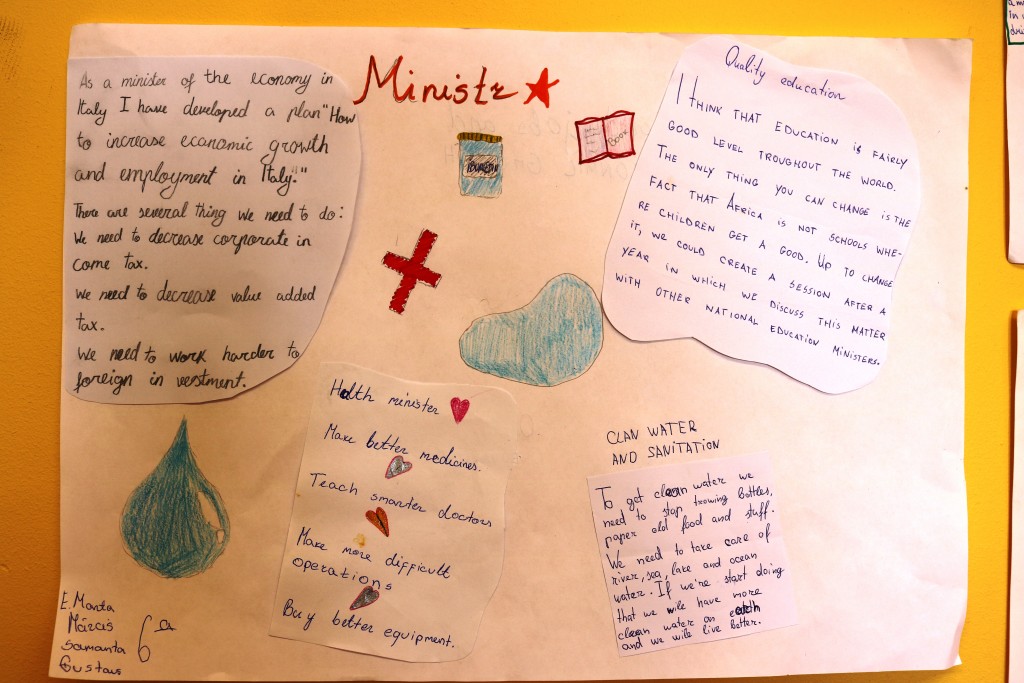 Ministr
As a minister of the economy in
Italy I have developed a plan "How
to increase economic growth
and employment in Italy."
There are several thing we need to do:
We need to decrease corporate in
come tax.
We need to decrease value added
tax.
We need to work harder to
foreign in vestment.
BOOK
Quality education
I THINK THAT EDUCATION is FAIRLY
GOOD LEVEL TROUGHOUT THE WORLD.
THE ONLY THING YOU CAN CHANGE IS THE
FACT THAT AFRICA IS NOT SCHOOLS WHE-
RE CHILDREN GET A GOOD. UP TO CHANGE
IT, WE COULD CREATE A SESSION AFTER A
YEAR IN WHICH WE DISCUSS THIS MATTER
WITH OTHER NATIONAL EDUCATION MINISTERS.
Health minister
Make better medicines.
Teach smarter doctors
Make more difficult
operations
Buy better equipment.
CLAN WATER
AND SANITATION
To get clean water we
need to stop trowing bottles,
paper old food and stuff.
We need to take care of
river, sea, lake and ocean
water. If we're start doing
that we will have more
clean water on earth
and we will live better.
E. Manta
Márcis
Samanta
Gustavs
6a